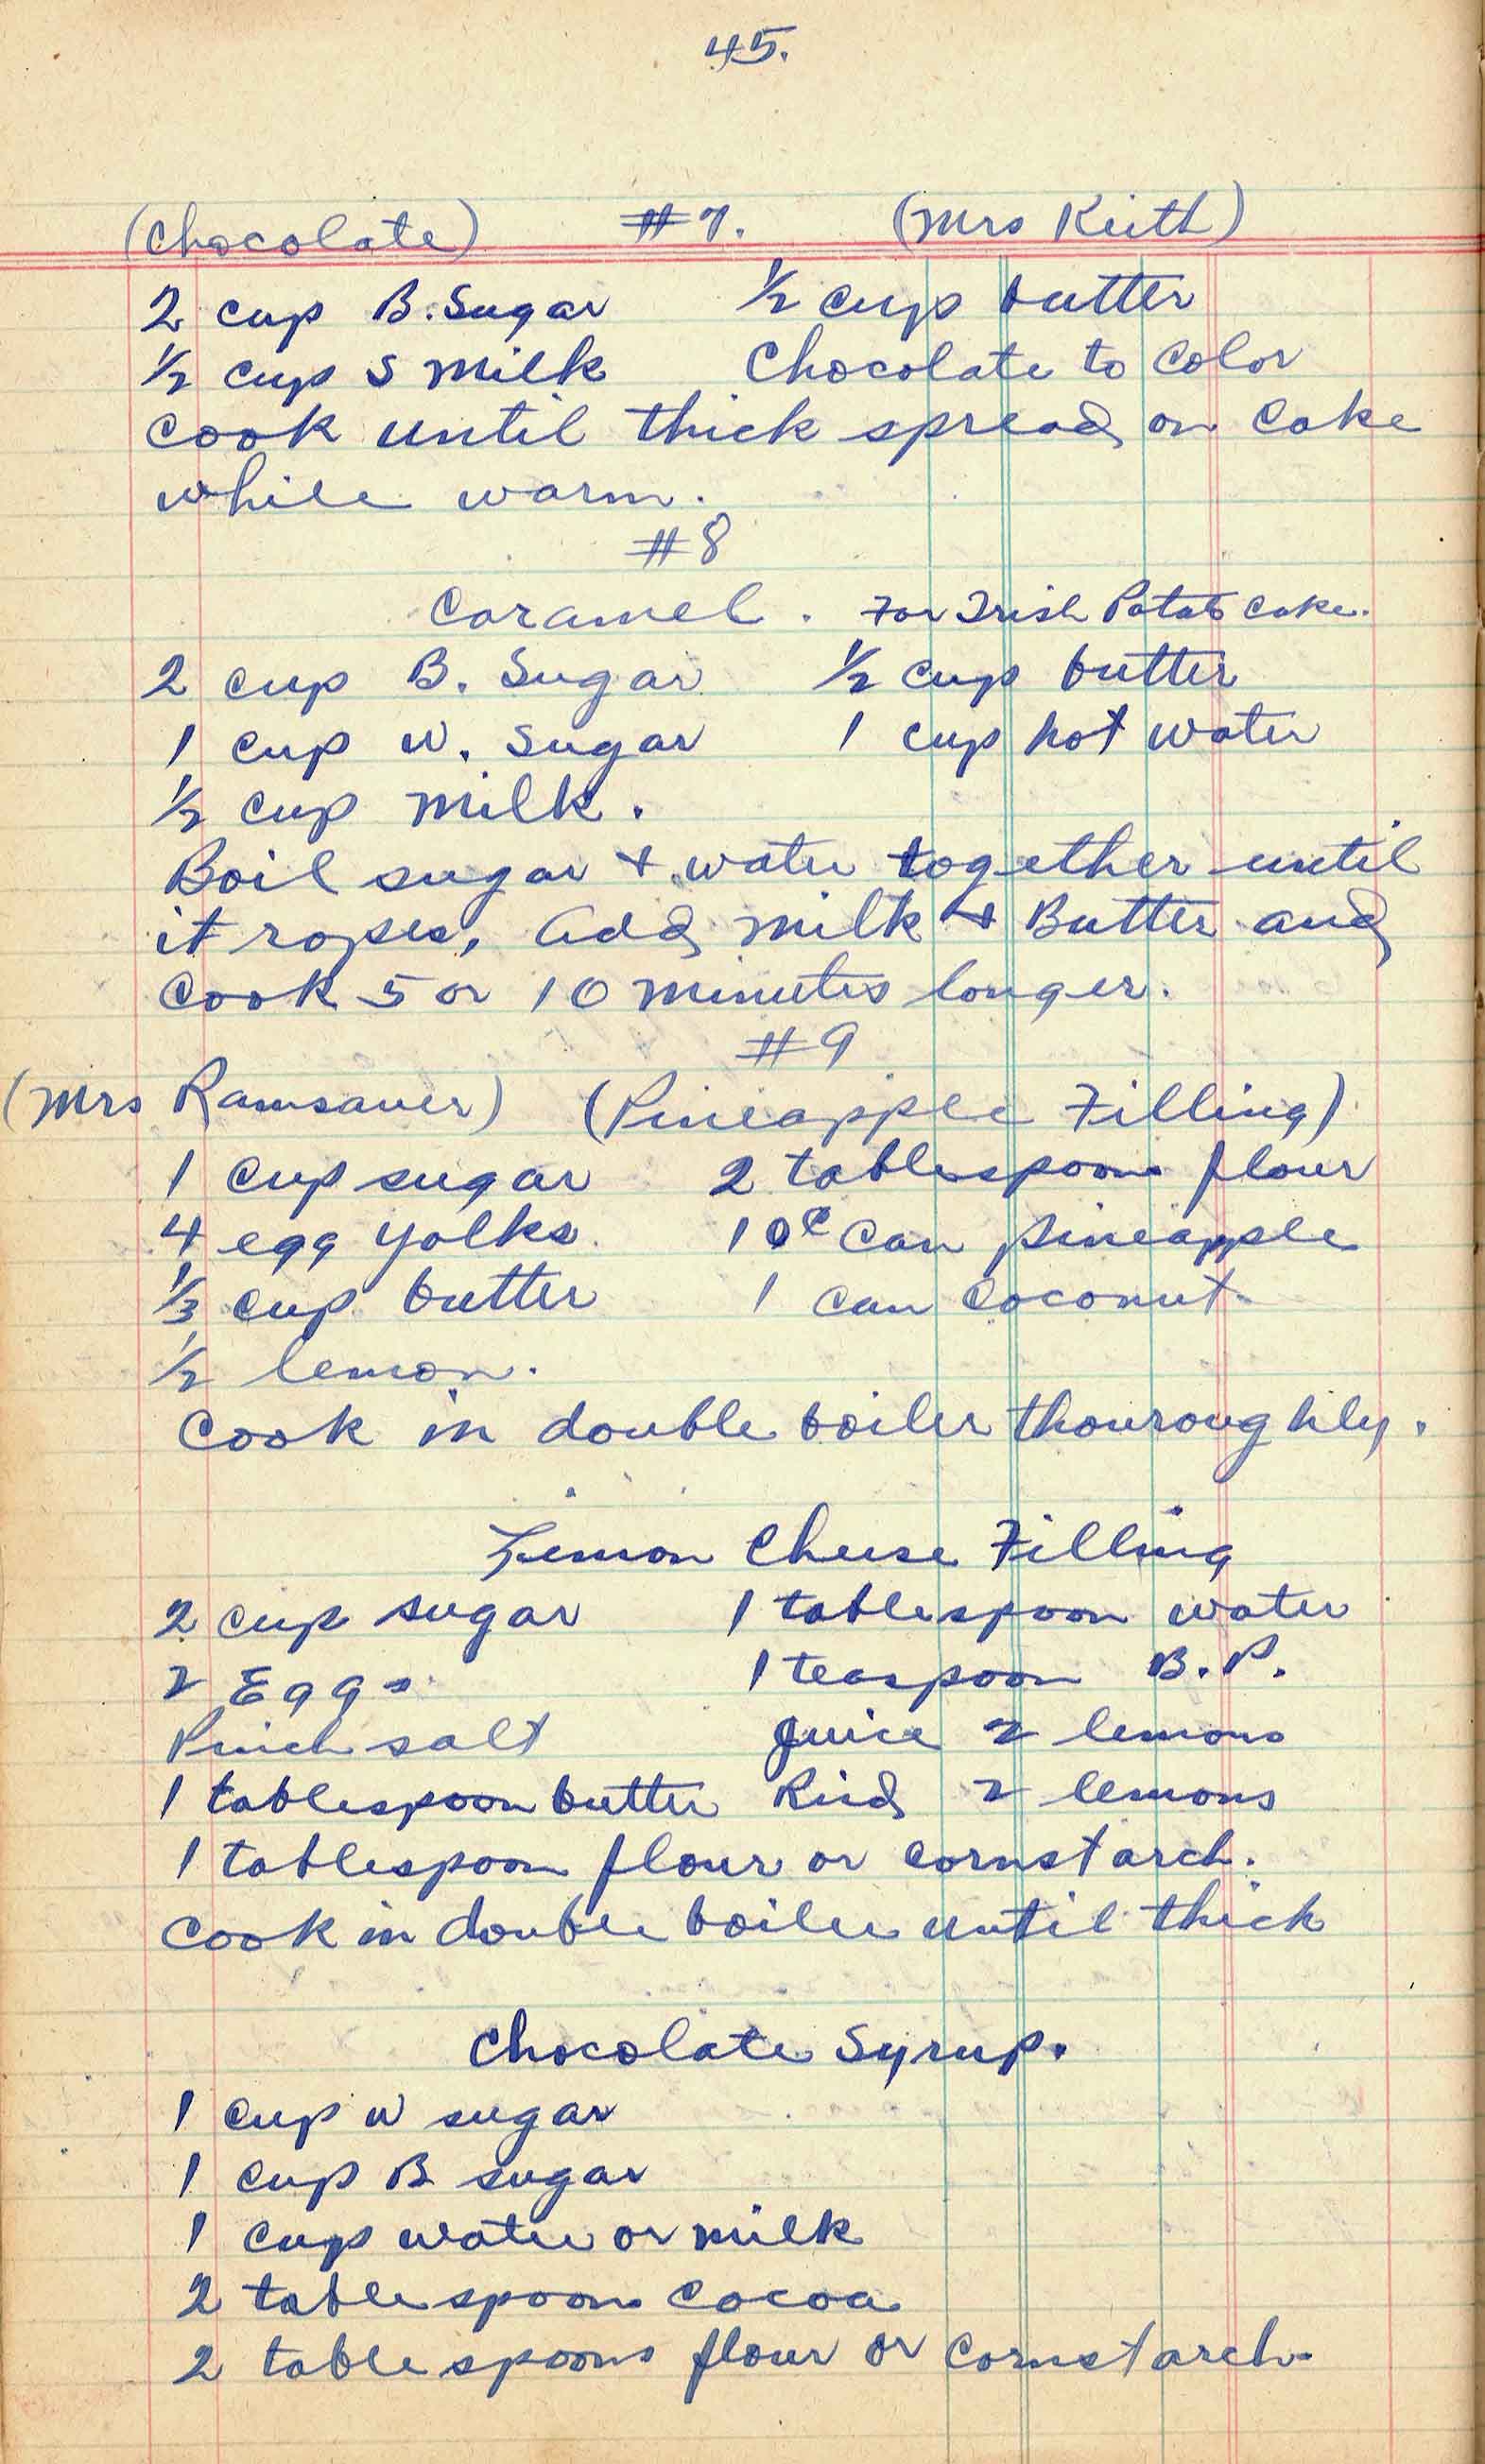 45.
(Chocolate) #7. (Mrs Keith)
2 cup B. Sugar ½ cup butter
½ cup S Milk Chocolate to Color
Cook until thick spread on Cake
while warm.
#8
Caramel. For Irish Potato Cake.
2 cup B. Sugar ½ cup butter
1 cup W. Sugar 1 cup hot water
½ cup Milk.
Boil sugar + water together until
it ropes, add Milk + Butter and
Cook 5 or 10 minutes longer.
#9
(Mrs Ramsaver) (Pineapple Filling)
1 cup sugar 2 tablespoons flour
4 egg yolks 10¢ Can pineapple
⅓ cup butter 1 can Coconut
½ lemon.
Cook in double boiler thouroughly.
Lemon Cheese Filling
2 cup sugar 1 tablespoon water
2 Eggs 1 teaspoon B.P.
Pinch salt Juice 2 lemons
1 tablespoon butter Rind 2 lemons
1 tablespoon flour or cornstarch.
Cook in double boiler until thick
Chocolate Syrup.
1 cup W sugar
1 cup B sugar
1 cup water or milk
2 tablespoons Cocoa
2 tablespoons flour or Cornstarch.